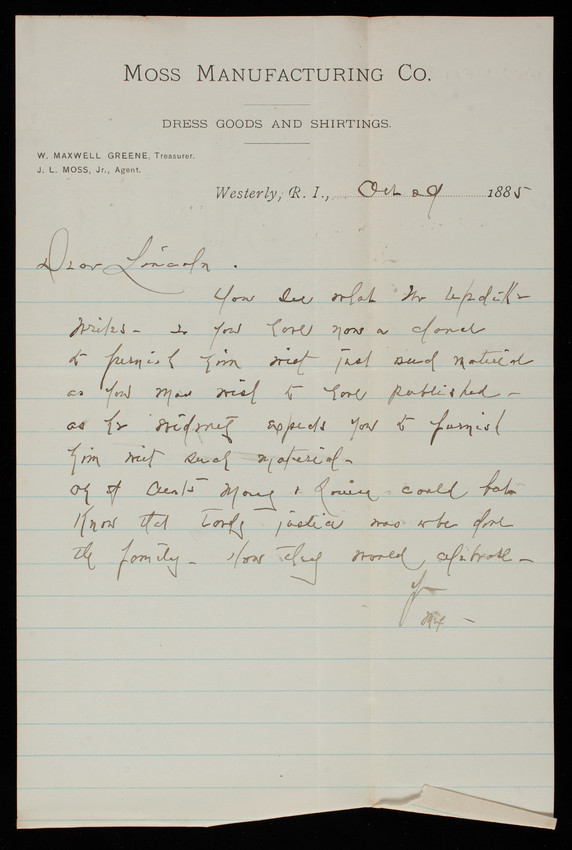 MOSS MANUFACTURING CO.
DRESS GOODS AND SHIRTINGS.
W. MAXWELL GREENE, Treasurer.
J. L. MOSS, Jr., Agent.
Westerly, R. I., Oct 29 1885
Dear Lincoln.
You see what Mr Updike
writes - so you have now a chance
to furnish him with just such material
as you may wish to have published -
as he evidently expects you to furnish
him with such material -
Oh if Aunts Mary & Louisa could but
know that tardy justice was to be done
the family - How they would